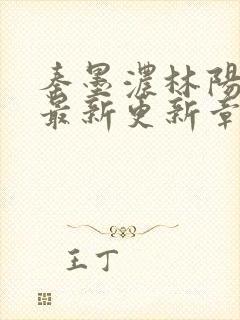 秦墨濃林陽
最新更新章
王丁